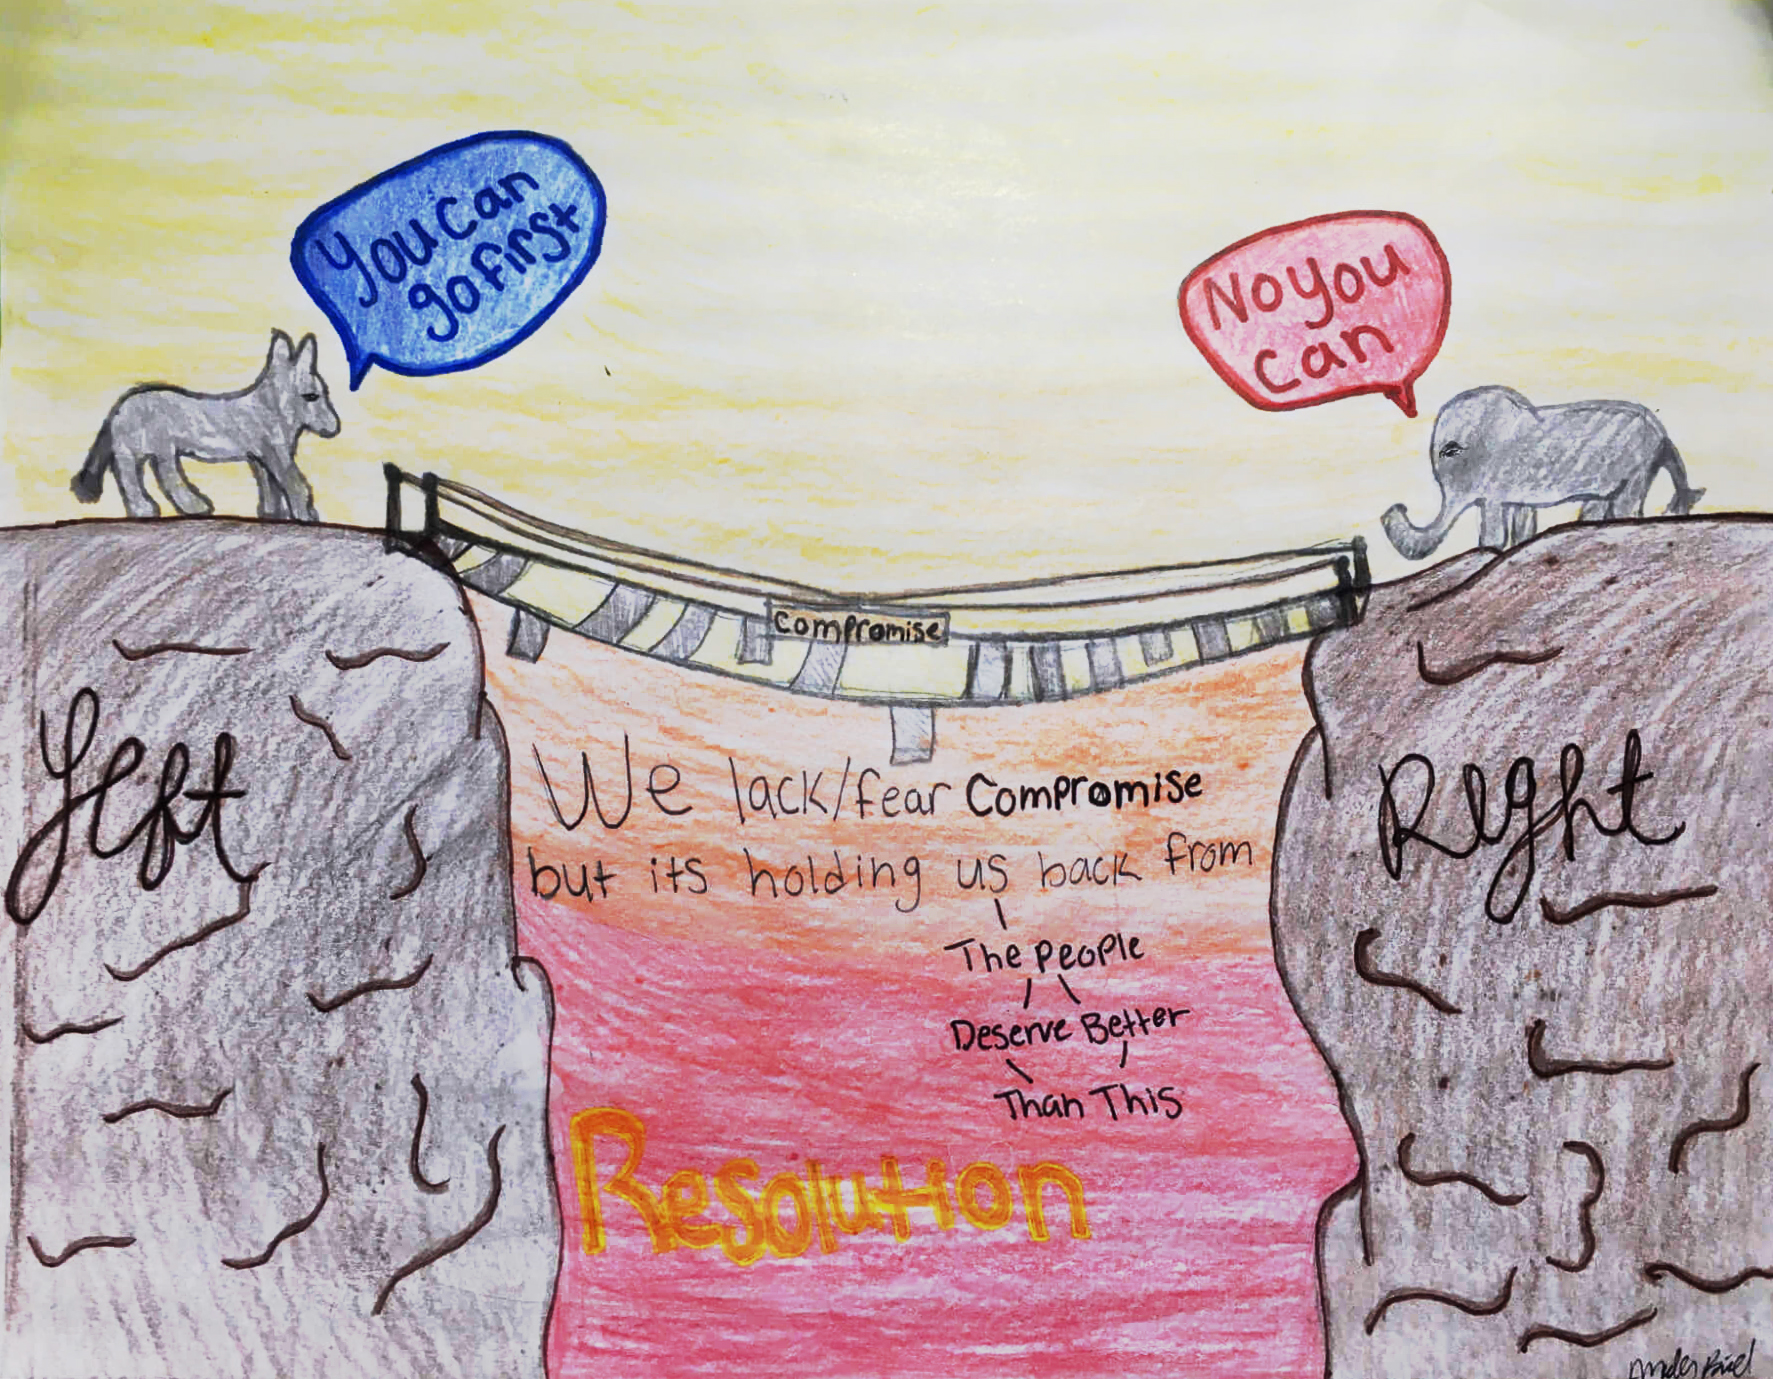 You can
go first
No you
can
Compromise
Left
Right
We lack/fear Compromise
but its holding us back from
The People
Deserve Better
Than This
Resolution